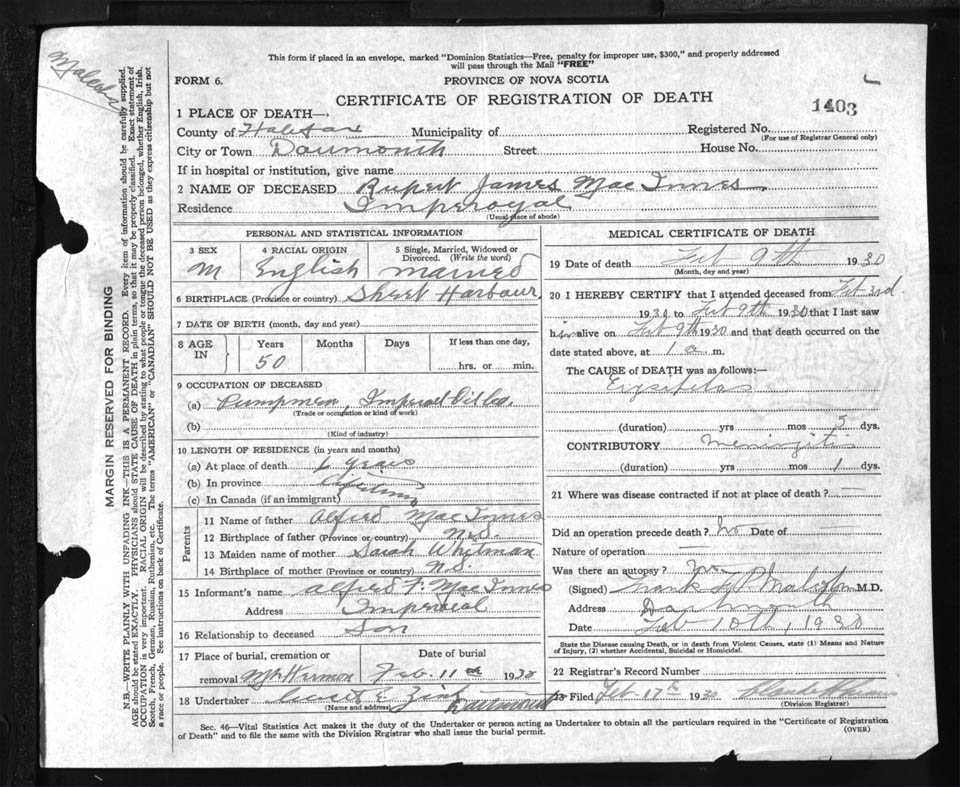 This form if placed in an envelope, marked "Dominion Statistics—Free, penalty for improper use, $300," and properly addressed
will pass through the Mail "FREE"
FORM 6.
PROVINCE OF NOVA SCOTIA
CERTIFICATE OF REGISTRATION OF DEATH
1403
1 PLACE OF DEATH—
County of Halifax Municipality of Registered No.
(For use of Registrar General only)
City or Town Street House No.
If in hospital or institution, give name
2 NAME OF DECEASED Rupert James MacInnes
Residence Imperoyal
(Usual place of abode)
PERSONAL AND STATISTICAL INFORMATION
3 SEX 4 RACIAL ORIGIN 5 Single, Married, Widowed or
Divorced. (Write the word)
M English Married
6 BIRTHPLACE (Province or country) Sheet Harbour
7 DATE OF BIRTH (month, day and year)
8 AGE IN Years Months Days If less than one day,
50 hrs. or min.
9 OCCUPATION OF DECEASED
(a) Pumpman, Imperial Oil Co.
(Trade or occupation or kind of work)
(b)
(Kind of industry)
10 LENGTH OF RESIDENCE (in years and months)
(a) At place of death years
(b) In province Lifetime
(c) In Canada (if an immigrant)
Parents
11 Name of father Alfred MacInnes
12 Birthplace of father (Province or country) N.S.
13 Maiden name of mother Sarah Whitman
14 Birthplace of mother (Province or country) N.S.
15 Informant's name Alfred F. MacInnes
Address
16 Relationship to deceased Son
17 Place of burial, cremation or Date of burial
removal Mt Hermon Feb. 11th 1930
18 Undertaker
(Name and address)
MEDICAL CERTIFICATE OF DEATH
19 Date of death Feb 9th 1930
(Month, day and year)
20 I HEREBY CERTIFY that I attended deceased from Feb 3rd
1930 to Feb 9th 1930 that I last saw
him alive on Feb 9th 1930 and that death occurred on
the date stated above, at 1 a. m.
The CAUSE of DEATH was as follows:—
Erysipelas
(duration) yrs mos 5 dys.
CONTRIBUTORY Meningitis
(duration) yrs mos 1 dys.
21 Where was disease contracted if not at place of death?
Did an operation precede death? No Date of
Nature of operation —
Was there an autopsy?
(Signed) Frank M.D.
Address Dartmouth
Date Feb 10th, 1930
State the Disease causing Death, or in death from Violent Causes, state (1) Means and Nature
of Injury, (2) whether Accidental, Suicidal or Homicidal.
22 Registrar's Record Number
23 Filed Feb. 1930
(Division Registrar)
Sec. 46—Vital Statistics Act makes it the duty of the Undertaker or person acting as Undertaker to obtain all the particulars required in the "Certificate of Registration
of Death" and to file the same with the Division Registrar who shall issue the burial permit.
(OVER)
MARGIN RESERVED FOR BINDING
N.B.—WRITE PLAINLY WITH UNFADING INK—THIS IS A PERMANENT RECORD. Every item of information should be carefully supplied.
AGE should be stated EXACTLY. PHYSICIANS should STATE CAUSE OF DEATH in plain terms, so that it may be properly classified. Exact statement of
OCCUPATION is very important. RACIAL ORIGIN will be described by stating to what people or tongue the deceased person belonged, whether English, Irish,
Scotch, French, German, Russian, Ruthenian, etc. The terms "AMERICAN" or "CANADIAN" SHOULD NOT BE USED as they express citizenship but not
a race or people. See instructions on back of Certificate.